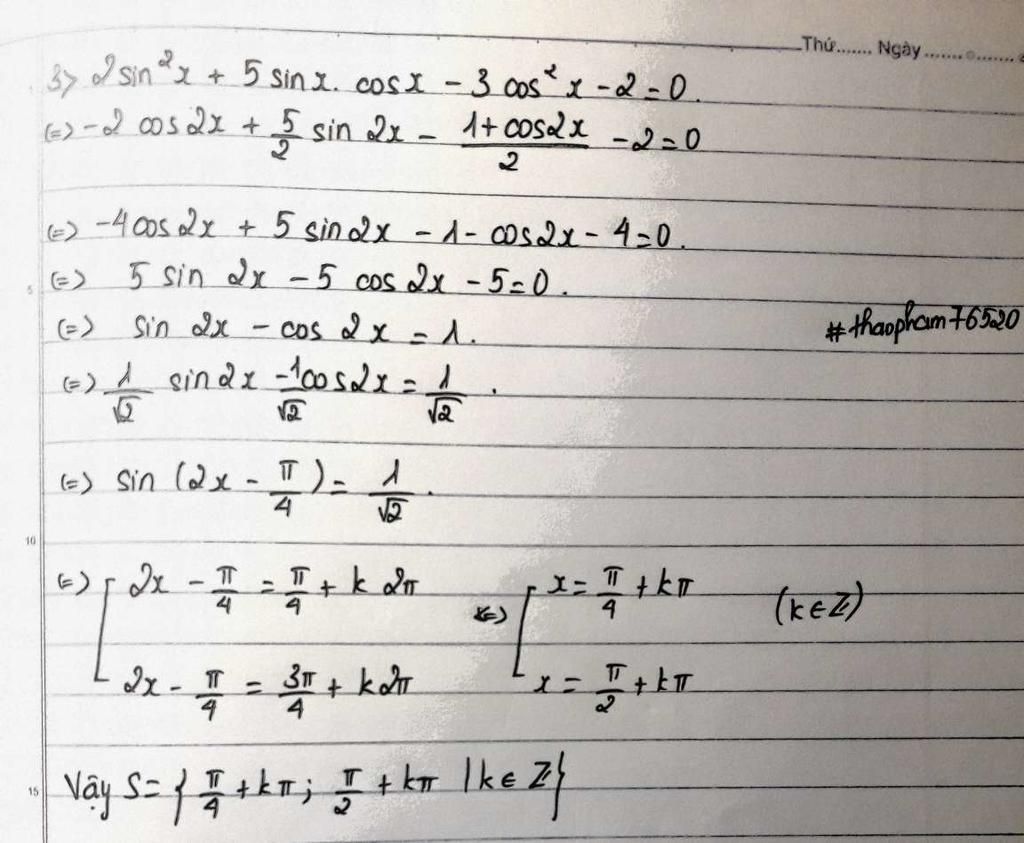 Thứ....... Ngày...............
3> 2 sin²x + 5 sinx. cosx - 3 cos²x - 2 = 0.
(=) -2 cos 2x + 5/2 sin 2x - (1+cos2x)/2 - 2 = 0
(=) -4cos2x + 5 sin2x - 1 - cos2x - 4 = 0.
5 (=) 5 sin 2x - 5 cos 2x - 5 = 0.
(=) sin 2x - cos 2x = 1. #thaopham76520
(=) 1/√2 sin2x - 1/√2 cos2x = 1/√2.
(=) sin (2x - π/4) = 1/√2.
10
(=) [ 2x - π/4 = π/4 + k2π (=) [ x = π/4 + kπ (k ∈ Z)
2x - π/4 = 3π/4 + k2π x = π/2 + kπ
15 Vậy S = { π/4 + kπ; π/2 + kπ | k ∈ Z }